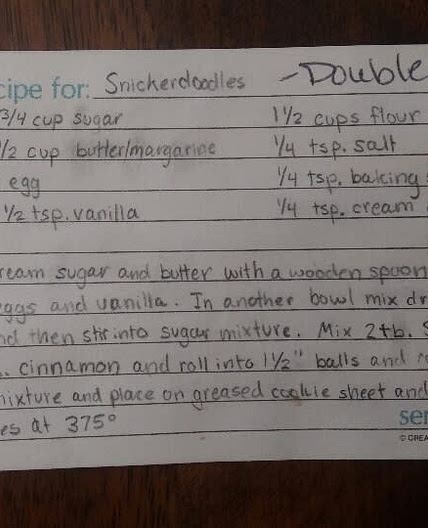 cipe for: Snickerdoodles - Double
3/4 cup sugar 1 1/2 cups flour
1/2 cup butter/margarine 1/4 tsp. salt
egg 1/4 tsp. baking
1/2 tsp. vanilla 1/4 tsp. cream
ream sugar and butter with a wooden spoon
eggs and vanilla. In another bowl mix dr
nd then stir into sugar mixture. Mix 2 tb. S
. cinnamon and roll into 1 1/2" balls and
mixture and place on greased cookie sheet and
es at 375°
ser
© CREA